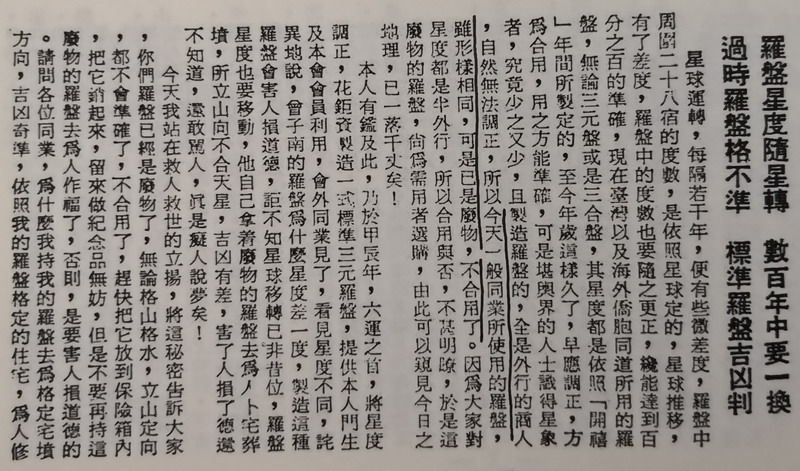 羅盤星度隨星轉　數百年中要一換
過時羅盤格不準　標準羅盤吉凶判
星球運轉，每隔若干年，便有些微差度，羅盤中
周圍二十八宿的度數，是依照星球定的，星球推移，
有了差度，羅盤中的度數也要隨之更正，纔能達到百
分之百的準確，現在臺灣以及海外僑胞同道所用的羅
盤，無論三元盤或是三合盤，其星度都是依照「開禧
」年間所製定的，至今年歲這樣久了，早應調正，方
爲合用，用之方能準確，可是堪輿界的人士識得星象
者，究竟少之又少，且製造羅盤的，全是外行的商人
，自然無法調正，所以今天一般同業所使用的羅盤，
雖形樣相同，可是已是廢物，不合用了。因爲大家對
星度都是半外行，所以合用與否，不甚明瞭，於是這
廢物的羅盤，尙爲需用者選購，由此可以窺見今日之
地理，已一落千丈矣！
本人有鑑及此，乃於甲辰年，六運之首，將星度
調正，花鉅資製造一式標準三元羅盤，提供本人門生
及本會會員利用，會外同業見了，看見星度不同，詫
異地說，曾子南的羅盤爲什麼星度差一度，製造這種
羅盤會害人損道德，詎不知星球移轉已非昔位，羅盤
星度也要移動，他自己拿着廢物的羅盤去爲人卜宅葬
墳，所立山向不合天星，吉凶有差，害了人損了德還
不知道，還敢罵人，眞是癡人說夢矣！
今天我站在救人救世的立揚，將這秘密告訴大家
，你們羅盤已經是廢物了，無論格山格水，立山定向
，都不會準確了，不合用了，趕快把它放到保險箱內
，把它銷起來，留來做紀念品無妨，但是不要再持這
廢物的羅盤去爲人作福了，否則，是要害人損道德的
。請問各位同業，爲什麼我持我的羅盤去爲格定宅墳
方向，吉凶奇準，依照我的羅盤格定的住宅，爲人修